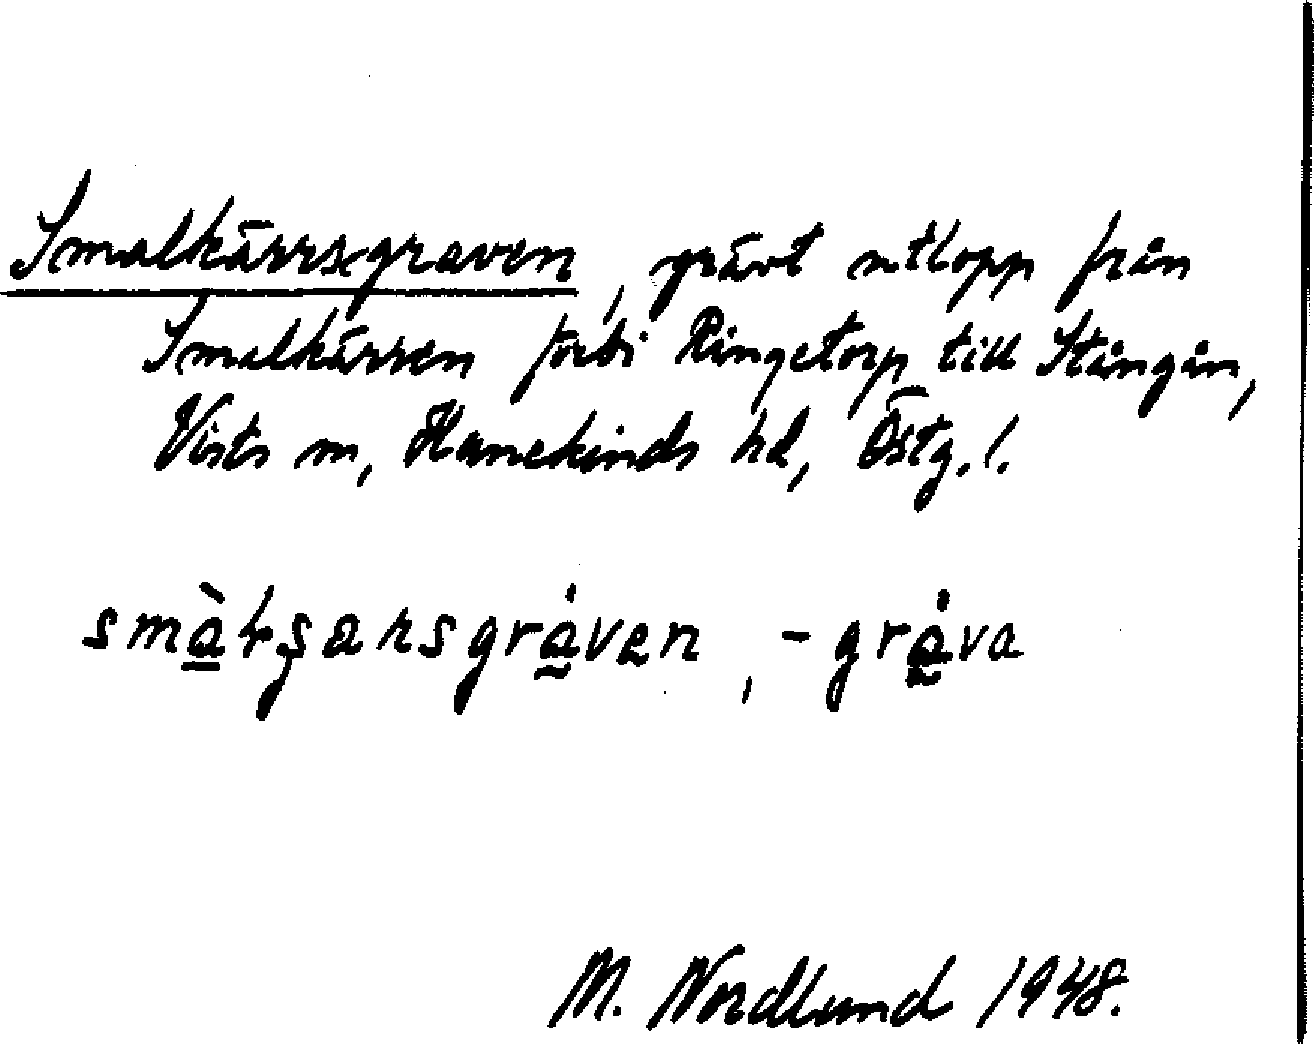 Smalkärrsgraven, grävt utlopp från
Smalkärren förbi Ringetorp till Stångån,
Vists sn, Hanekinds hd, Östg. l.
-gråva
M. Nordlund 1948.